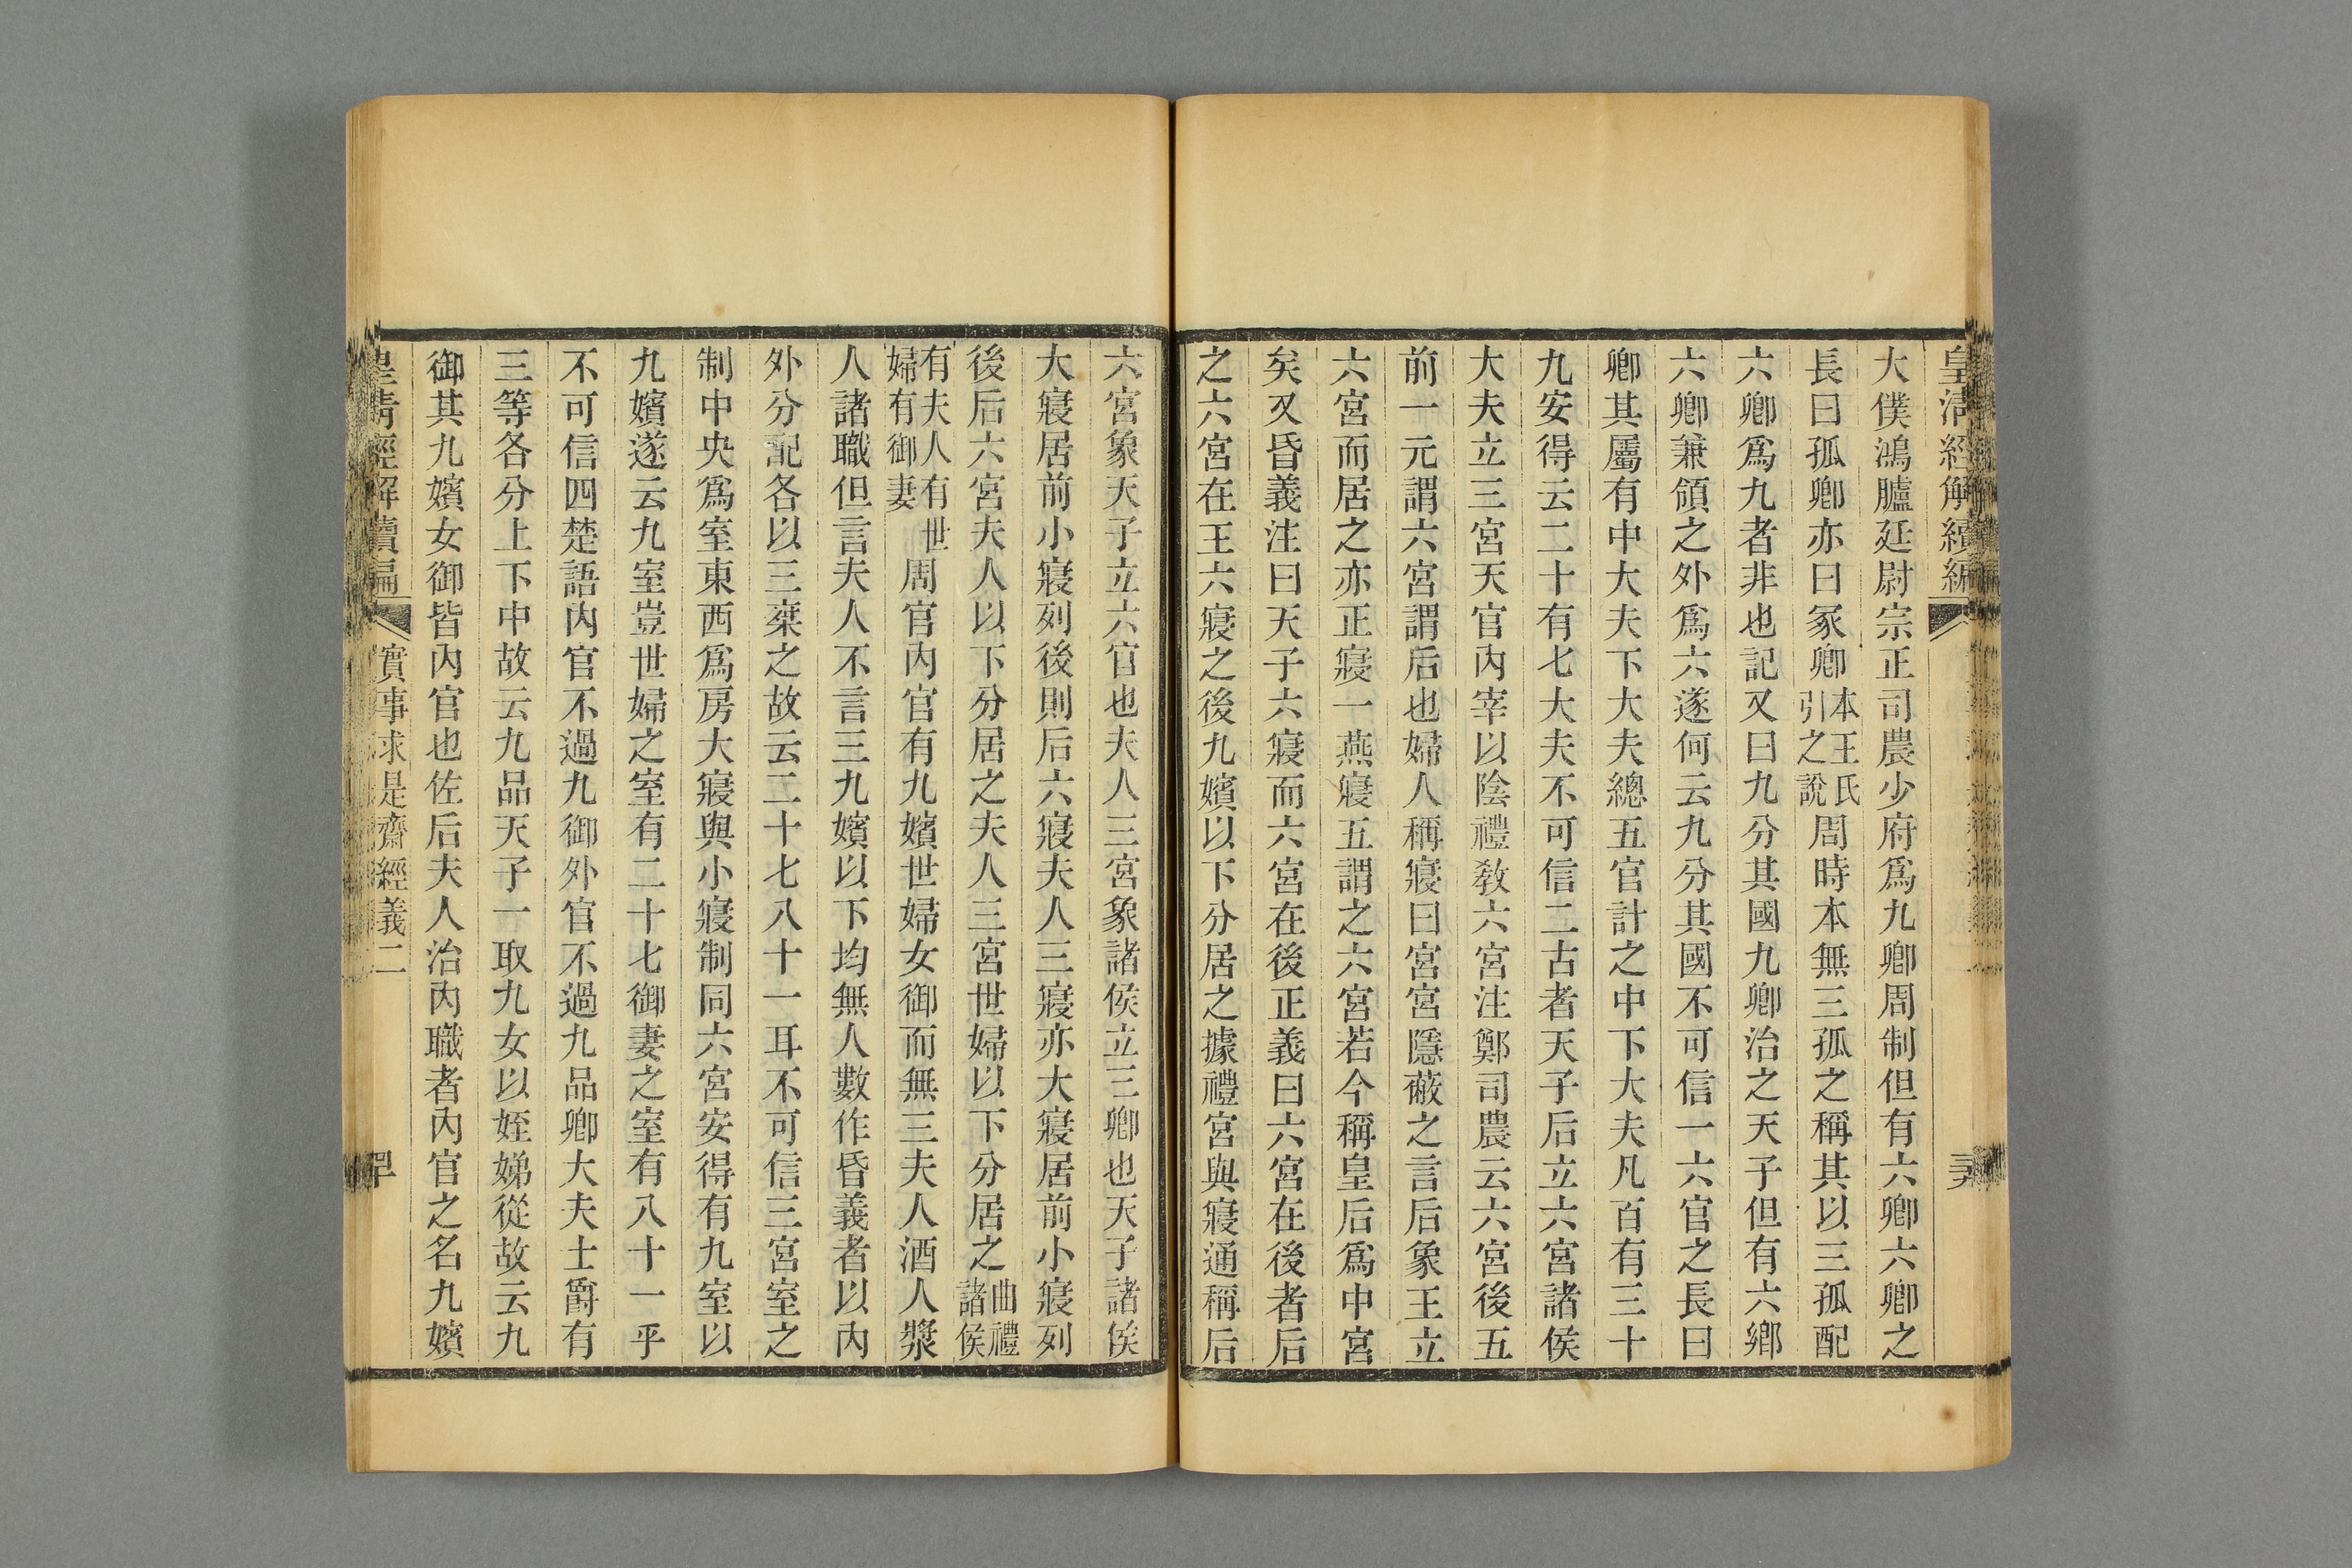 皇清經解續編
大僕鴻臚廷尉宗正司農少府爲九卿周制但有六卿六卿之
長曰孤卿亦曰冢卿本王氏引之說周時本無三孤之稱其以三孤配
六卿爲九者非也記又曰九分其國九卿治之天子但有六鄉
六卿兼領之外爲六遂何云九分其國不可信一六官之長曰
卿其屬有中大夫下大夫總五官計之中下大夫凡百有三十
九安得云二十有七大夫不可信二古者天子后立六宮諸侯
大夫立三宮天官內宰以陰禮教六宮注鄭司農云六宮後五
前一元謂六宮謂后也婦人稱寢曰宮宮隱蔽之言后象王立
六宮而居之亦正寢一燕寢五謂之六宮若今稱皇后爲中宮
矣又昏義注曰天子六寢而六宮在後正義曰六宮在後者后
之六宮在王六寢之後九嬪以下分居之據禮宮與寢通稱后
六宮象天子立六官也夫人三宮象諸侯立三卿也天子諸侯
大寢居前小寢列後則后六寢夫人三寢亦大寢居前小寢列
後后六宮夫人以下分居之夫人三宮世婦以下分居之曲禮諸侯
有夫人有世婦有御妻周官內官有九嬪世婦女御而無三夫人酒人漿
人諸職但言夫人不言三九嬪以下均無人數作昏義者以內
外分記各以三桒之故云二十七八十一耳不可信三宮室之
制中央爲室東西爲房大寢與小寢制同六宮安得有九室以
九嬪遂云九室豈世婦之室有二十七御妻之室有八十一乎
不可信四楚語內官不過九御外官不過九品卿大夫士爵有
三等各分上下中故云九品天子一取九女以姪娣從故云九
御其九嬪女御皆內官也佐后夫人治內職者內官之名九嬪
皇清經解續編 實事求是齋經義二